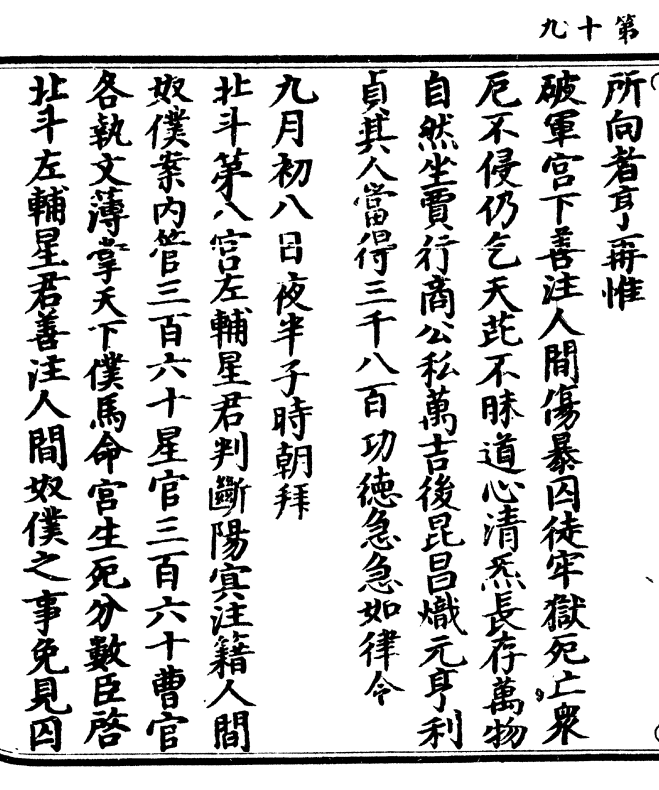 第十九
所向者亨再惟
破軍宮下善注人間傷暴囚徒牢獄死亡衆
厄不侵仍乞天芘不昧道心清炁長存萬物
自然坐賈行商公私萬吉後昆昌熾元亨利
貞其人當得三千八百功德急急如律令
九月初八日夜半子時朝拜
北斗第八宮左輔星君判斷陽㝠注籍人間
奴僕案內管三百六十星官三百六十曹官
各執文薄掌天下僕馬命宮生死分數臣啓
北斗左輔星君善注人間奴僕之事免見囚